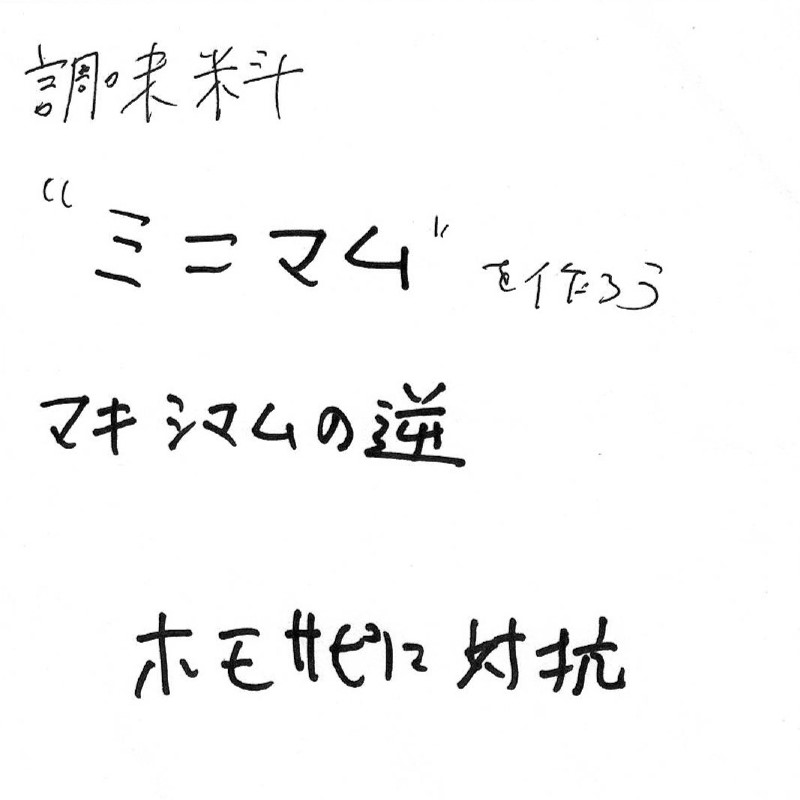 調味料
“ミニマム”を作ろう
マキシマムの逆
ホモサピに対抗